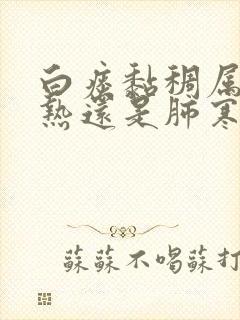 白痰黏稠属
熱還是肺寒
蘇蘇不喝蘇打